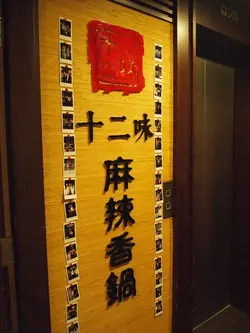 十二味
麻辣香鍋